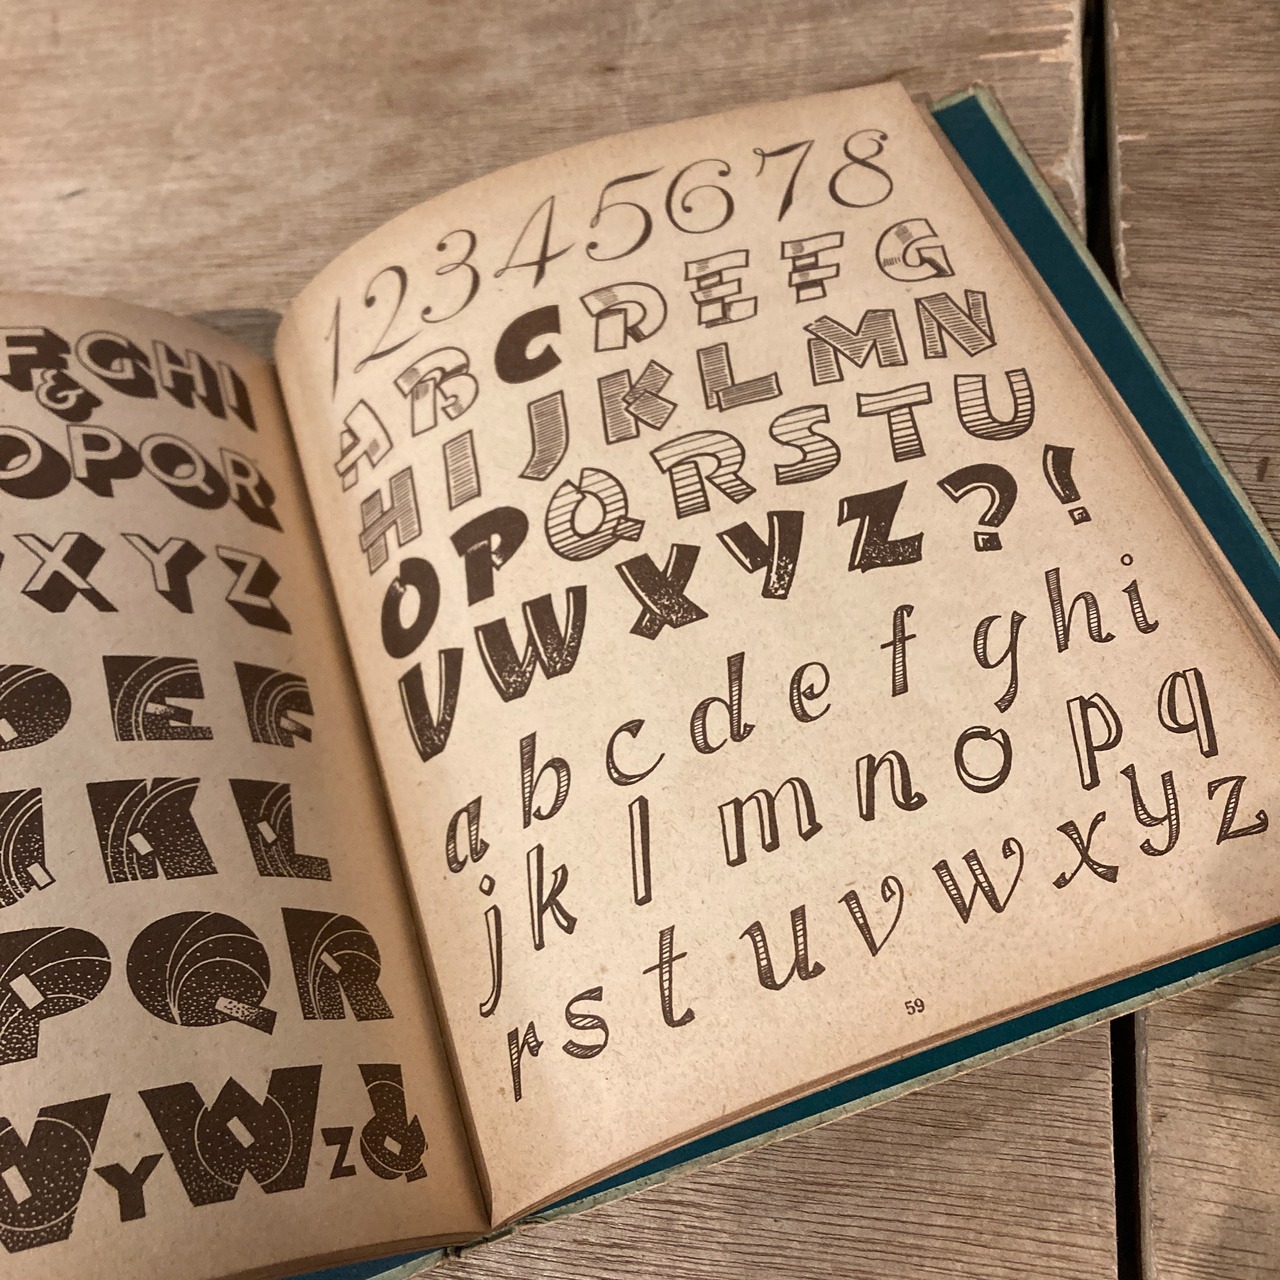 F G H I
&
O P Q R
X Y Z
D E F
K L
P Q R
V Y W Z &
1 2 3 4 5 6 7 8
A B C D E F G
H I J K L M N
O P Q R S T U
V W X Y Z ? !
a b c d e f g h i
j k l m n o p q
r s t u v w x y z
59